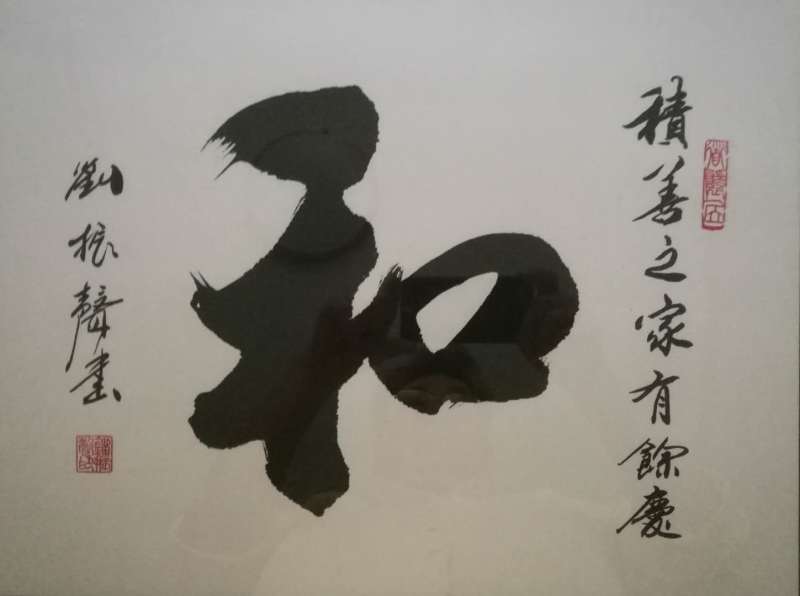 積善之家有餘慶
和
劉振聲書